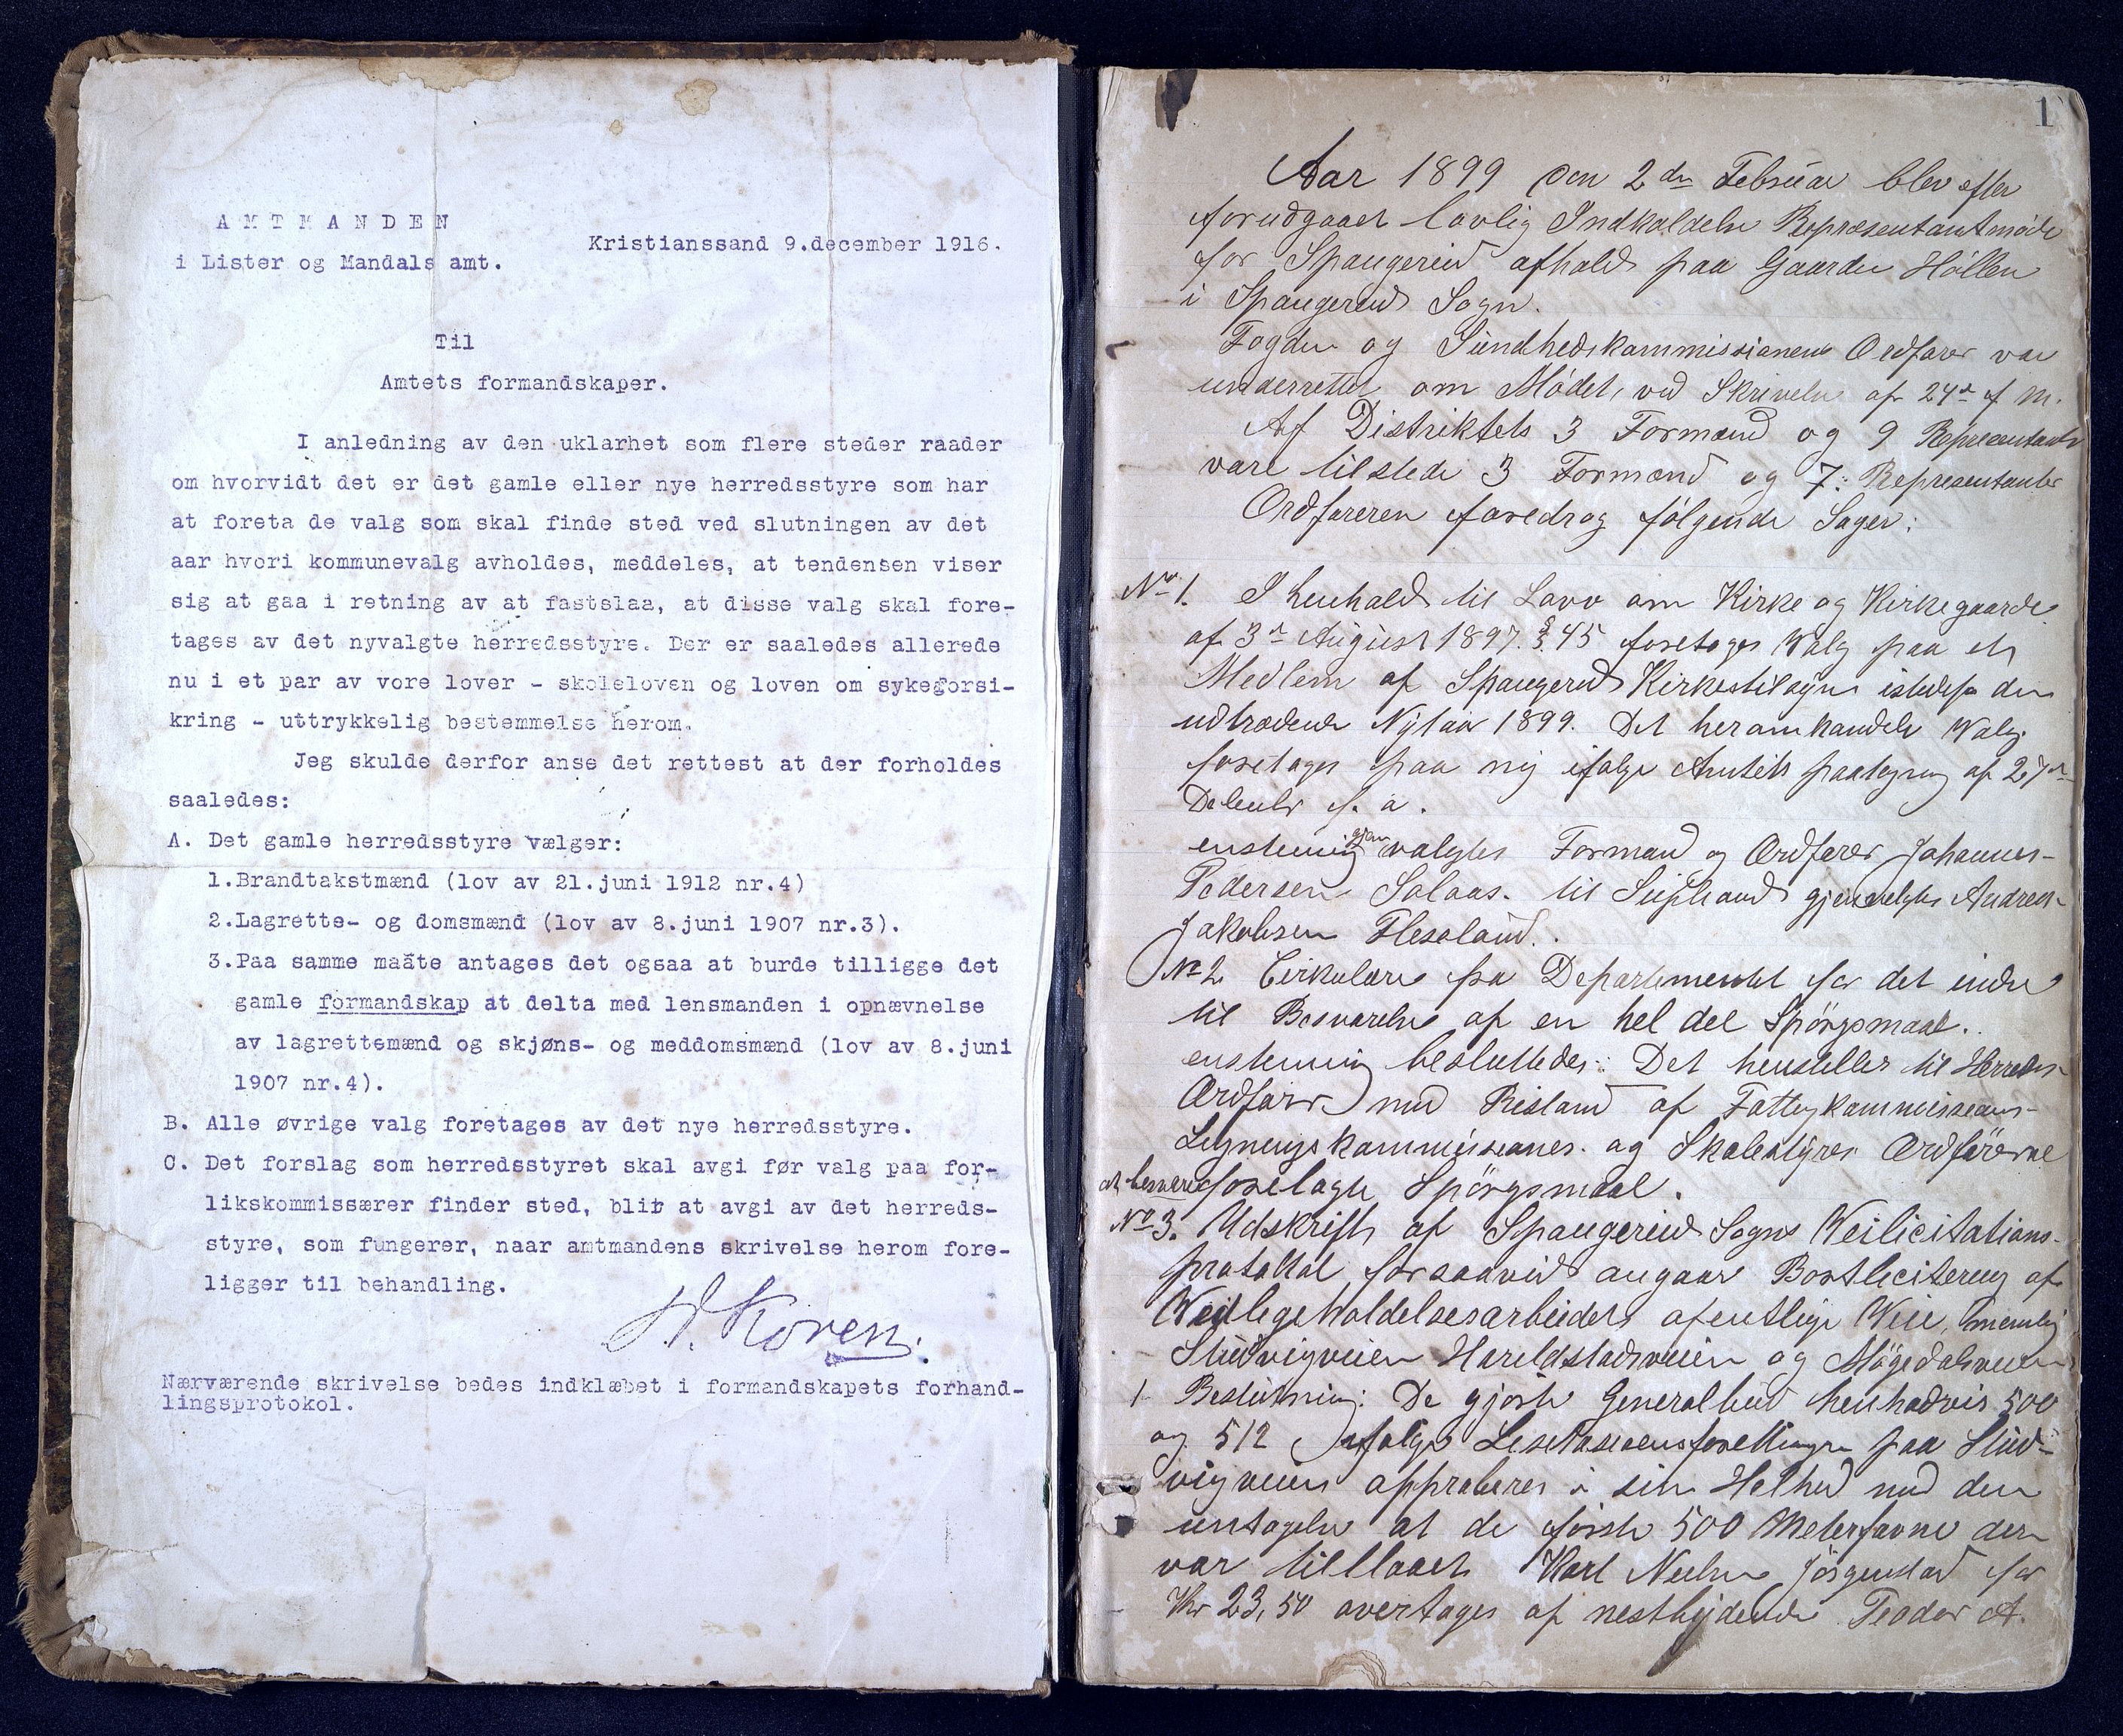 AMTMANDEN
i Lister og Mandals amt.
Kristianssand 9.december 1916.
Til
Amtets formandskaper.
I anledning av den uklarhet som flere steder raader
om hvorvidt det er det gamle eller nye herredsstyre som har
at foreta de valg som skal finde sted ved slutningen av det
aar hvori kommunevalg avholdes, meddeles, at tendensen viser
sig at gaa i retning av at fastslaa, at disse valg skal fore-
tages av det nyvalgte herredsstyre. Der er saaledes allerede
nu i et par av vore lover - skoleloven og loven om sykeforsi-
kring - uttrykkelig bestemmelse herom.
Jeg skulde derfor anse det rettest at der forholdes
saaledes:
A. Det gamle herredsstyre vælger:
1.Brandtakstmænd (lov av 21.juni 1912 nr.4)
2.Lagrette- og domsmænd (lov av 8.juni 1907 nr.3).
3.Paa samme maate antages det ogsaa at burde tilligge det
gamle formandskap at delta med lensmanden i opnævnelse
av lagrettemænd og skjøns- og meddomsmænd (lov av 8.juni
1907 nr.4).
B. Alle øvrige valg foretages av det nye herredsstyre.
C. Det forslag som herredsstyret skal avgi før valg paa for-
likskommissærer finder sted, blir at avgi av det herreds-
styre, som fungerer, naar amtmandens skrivelse herom fore-
ligger til behandling.
Koren.
Nærværende skrivelse bedes indklæbet i formandskapets forhand-
lingsprotokol.
1
Aar 1899 den 2den Februar blev efter
forudgaaet lovlig Indkaldelse Repræsentantmøde
for Spangereid afholdt paa Gaarden Høllen
i Spangereid Sogn.
Fogden og Sundhedskommissionens Ordfører var
underrettet om Mødet, ved Skrivelse af 24de f M.
Af Distriktets 3 Formænd og 9 Repræsentanter
vare tilstede 3 Formænd og 7: Repræsentanter
Ordføreren foredrog følgende Sager:
No 1. I henhold til Lov om Kirke og Kirkegaarde
af 3de August 1897. § 45 foretages Valg paa et
Medlem af Spangereid Kirketilsyn istedenfor den
udtrædende Nytaar 1899. Det heromhandlede Valg
foretages paa ny ifølge Amtets paategning af 27de
Decembr f. a.
enstemig gjenvalgtes Formand og Ordfører Johannes
Pedersen Salaas. til Supleand gjenvalgtes Andreas
Jakobsen Flesaland.
No 2 Cirkulære fra Departementet for det indre
til Besvarelse af en hel del Spørgsmaal.
enstemmig besluttedes: Det henstilles til Herreds
Ordfører med Bistand af Fattigkommissions-
Ligningskommissiones. og Skolestyres Ordførerne
at besvare forelagte Spørgsmaal.
No 3. Udskrift af Spangereid Sogns Veilicitations-
protokol forsaavid angaar Bortlicitering af
Veiligeholdelsesarbeidet ofentlige Veie, nemlig
Studvigveien Hareldstadveien og Møgedalsveien
1 Beslutning: De gjorte Generalbud henholdvis 500
og 512 ifølge paa Stud-
vigveien approberes i sin Helhed med den
untagelse at de første 500 Meterfavne der
var tilslaaet Karl Nielsen Jørgenstad for
Kr 23,50 overtages af nestbydende Teodor A.